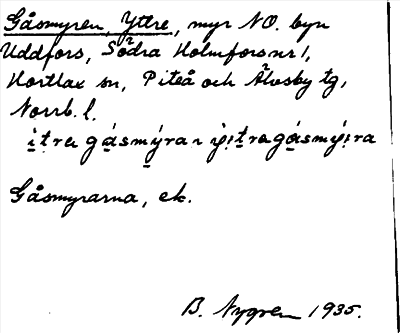 Gåsmyren, Yttre, myr NO. byn
Uddfors, Södra Holmfors nr 1,
Hortlax sn, Piteå och Älvsby tg,
Norrb. l.
Gåsmyrarna, ek.
B. Nygren 1935.